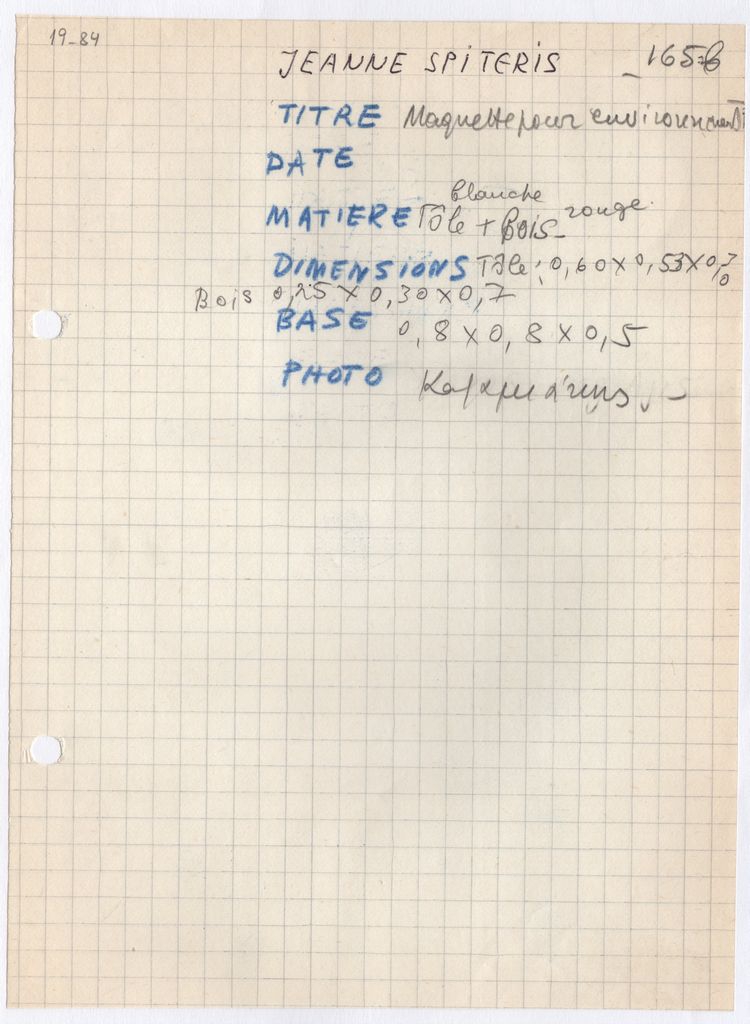 19-84
JEANNE SPITERIS _ 165 b
TITRE Maquette pour environnement
DATE
blanche
MATIERE Tôle + Bois_ rouge.
DIMENSIONS Tôle: 0,60 x 0,53 x 0,30
Bois 0,25 x 0,30 x 0,7
BASE 0,8 x 0,8 x 0,5
PHOTO